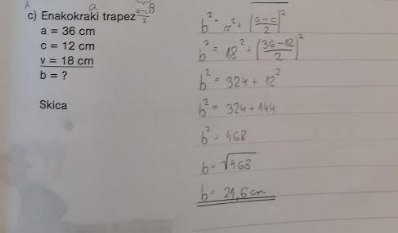 c) Enakokraki trapez
a = 36 cm
c = 12 cm
v = 18 cm
b = ?
Skica
b² = v² + (a-c/2)²
b² = 18² + (36-12/2)²
b² = 324 + 12²
b² = 324 + 144
b² = 468
b = √468
b = 21,6 cm